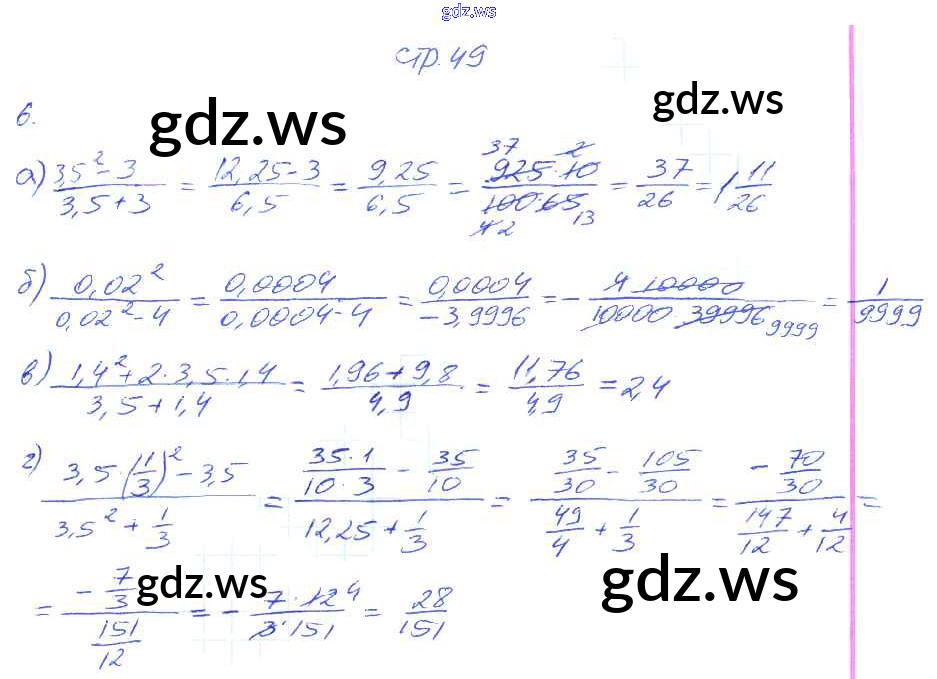 gdz.ws
стр. 49
6.
gdz.ws
gdz.ws
а) (3,5² - 3)/(3,5 + 3) = (12,25 - 3)/6,5 = 9,25/6,5 = (925 · 10)/(100 · 65) = 37/26 = 1 11/26
37 2 2 13
б) 0,02²/(0,02² - 4) = 0,0004/(0,0004 - 4) = 0,0004/(-3,9996) = - (4 · 10000)/(10000 · 39996) 9999 = 1/9999
в) (1,4² + 2 · 3,5 · 1,4)/(3,5 + 1,4) = (1,96 + 9,8)/4,9 = 11,76/4,9 = 2,4
г) (3,5 · (1/3)² - 3,5)/(3,5² + 1/3) = ((35 · 1)/(10 · 3) - 35/10)/(12,25 + 1/3) = (35/30 - 105/30)/(49/4 + 1/3) = (- 70/30)/(147/12 + 4/12) =
= (- 7/3)/(151/12) = - (7 · 12 4)/(3 · 151) = 28/151
gdz.ws
gdz.ws